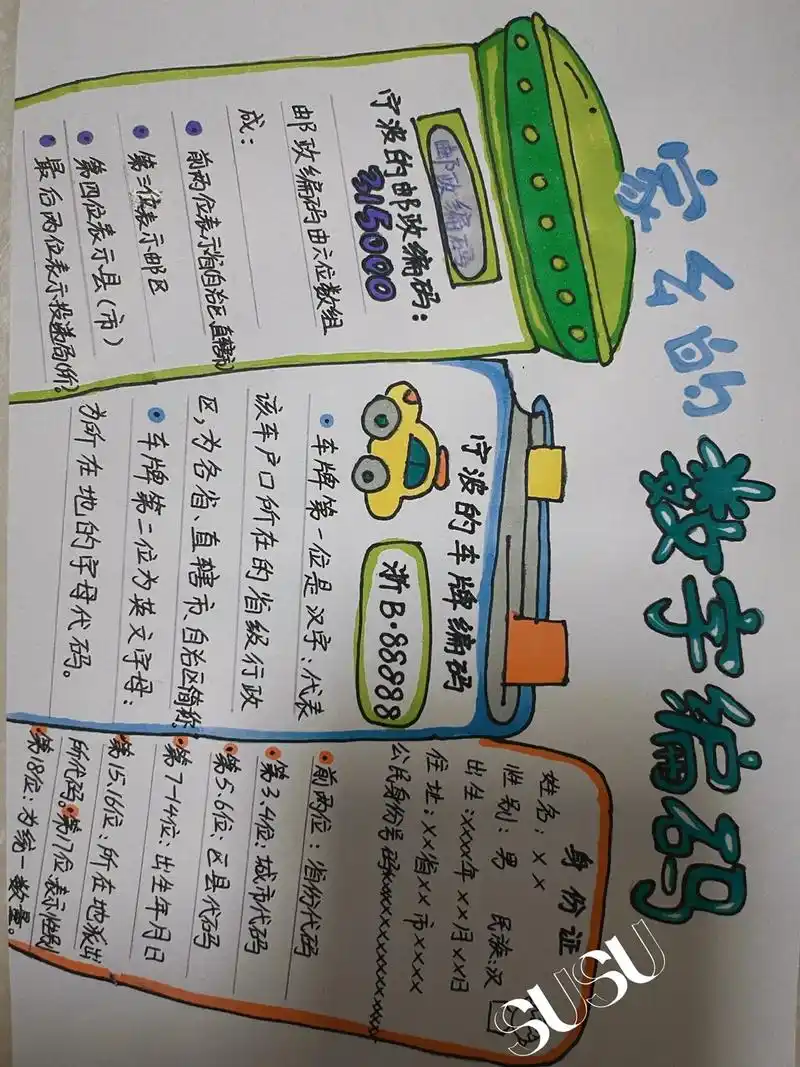 家乡的
数字编码
邮政编码
宁波的邮政编码：
315000
邮政编码由六位数组
成：
前两位表示省自治区直辖市
第三位表示邮区
第四位表示县（市）
最后两位表示投递局（所）
宁波的车牌编码
浙B·88888
车牌第一位是汉字：代表
该车户口所在的省级行政
区，为各省、直辖市、自治区简称。
车牌第二位为英文字母：
为所在地的字母代码。
身份证
姓名：××
性别：男 民族：汉
出生：××××年××月××日
住址：××省××市××××
公民身份号码××××××××××××××
前两位：省份代码
第3.4位：城市代码
第5.6位：区县代码
第7-14位：出生年月日
第15.16位：所在地派出
所代码。第17位表示性别
第18位：为统一数量。
SUSU